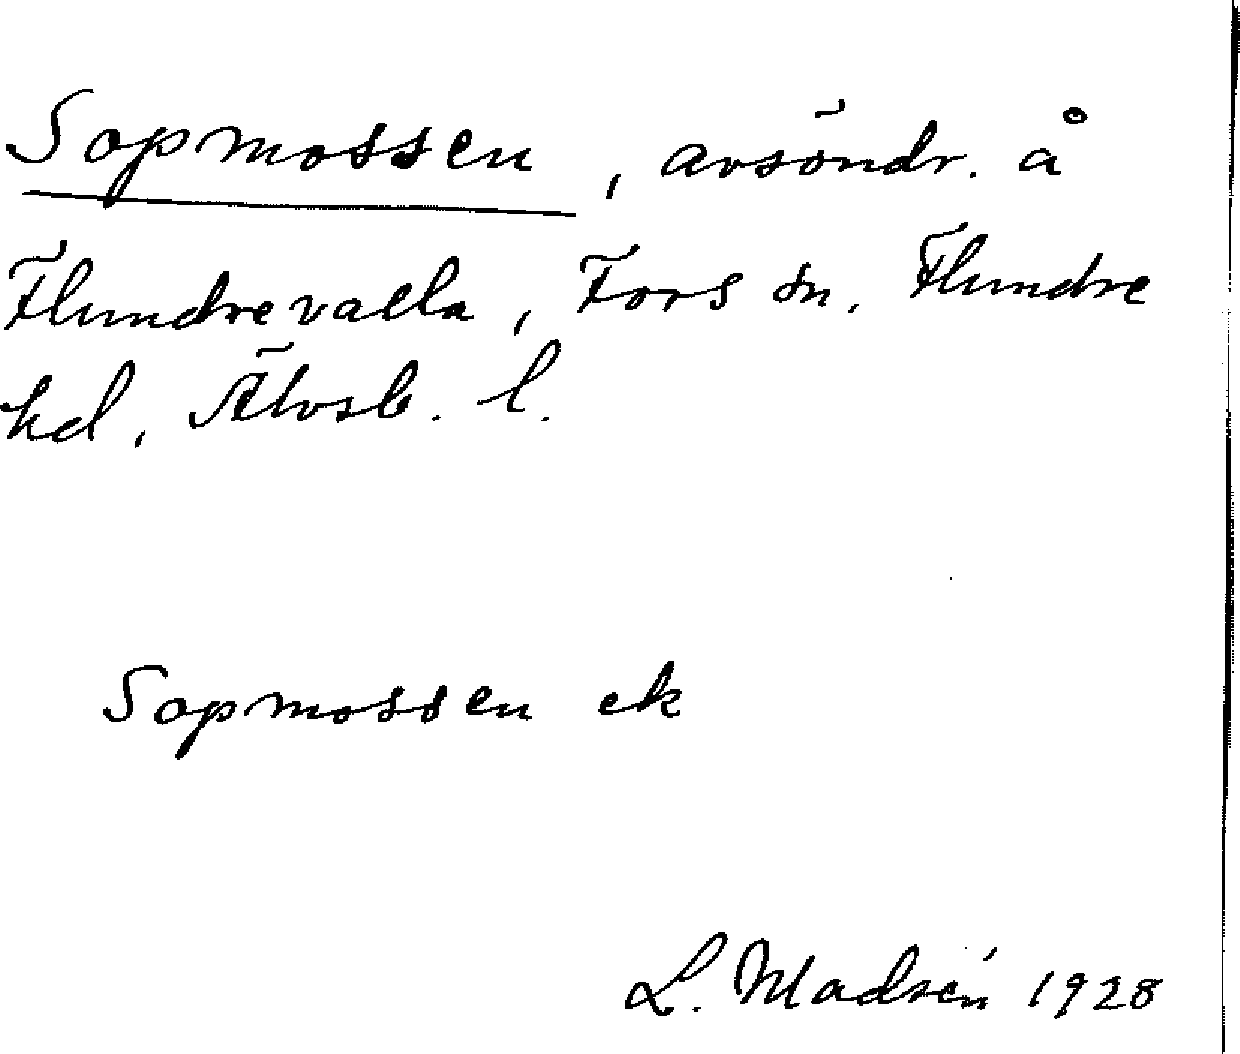 Sopmossen, avsöndr. å
Flundrevalla, Fors sn. Flundre
hd, Älvsb. l.
Sopmossen ek
L. Madsén 1928